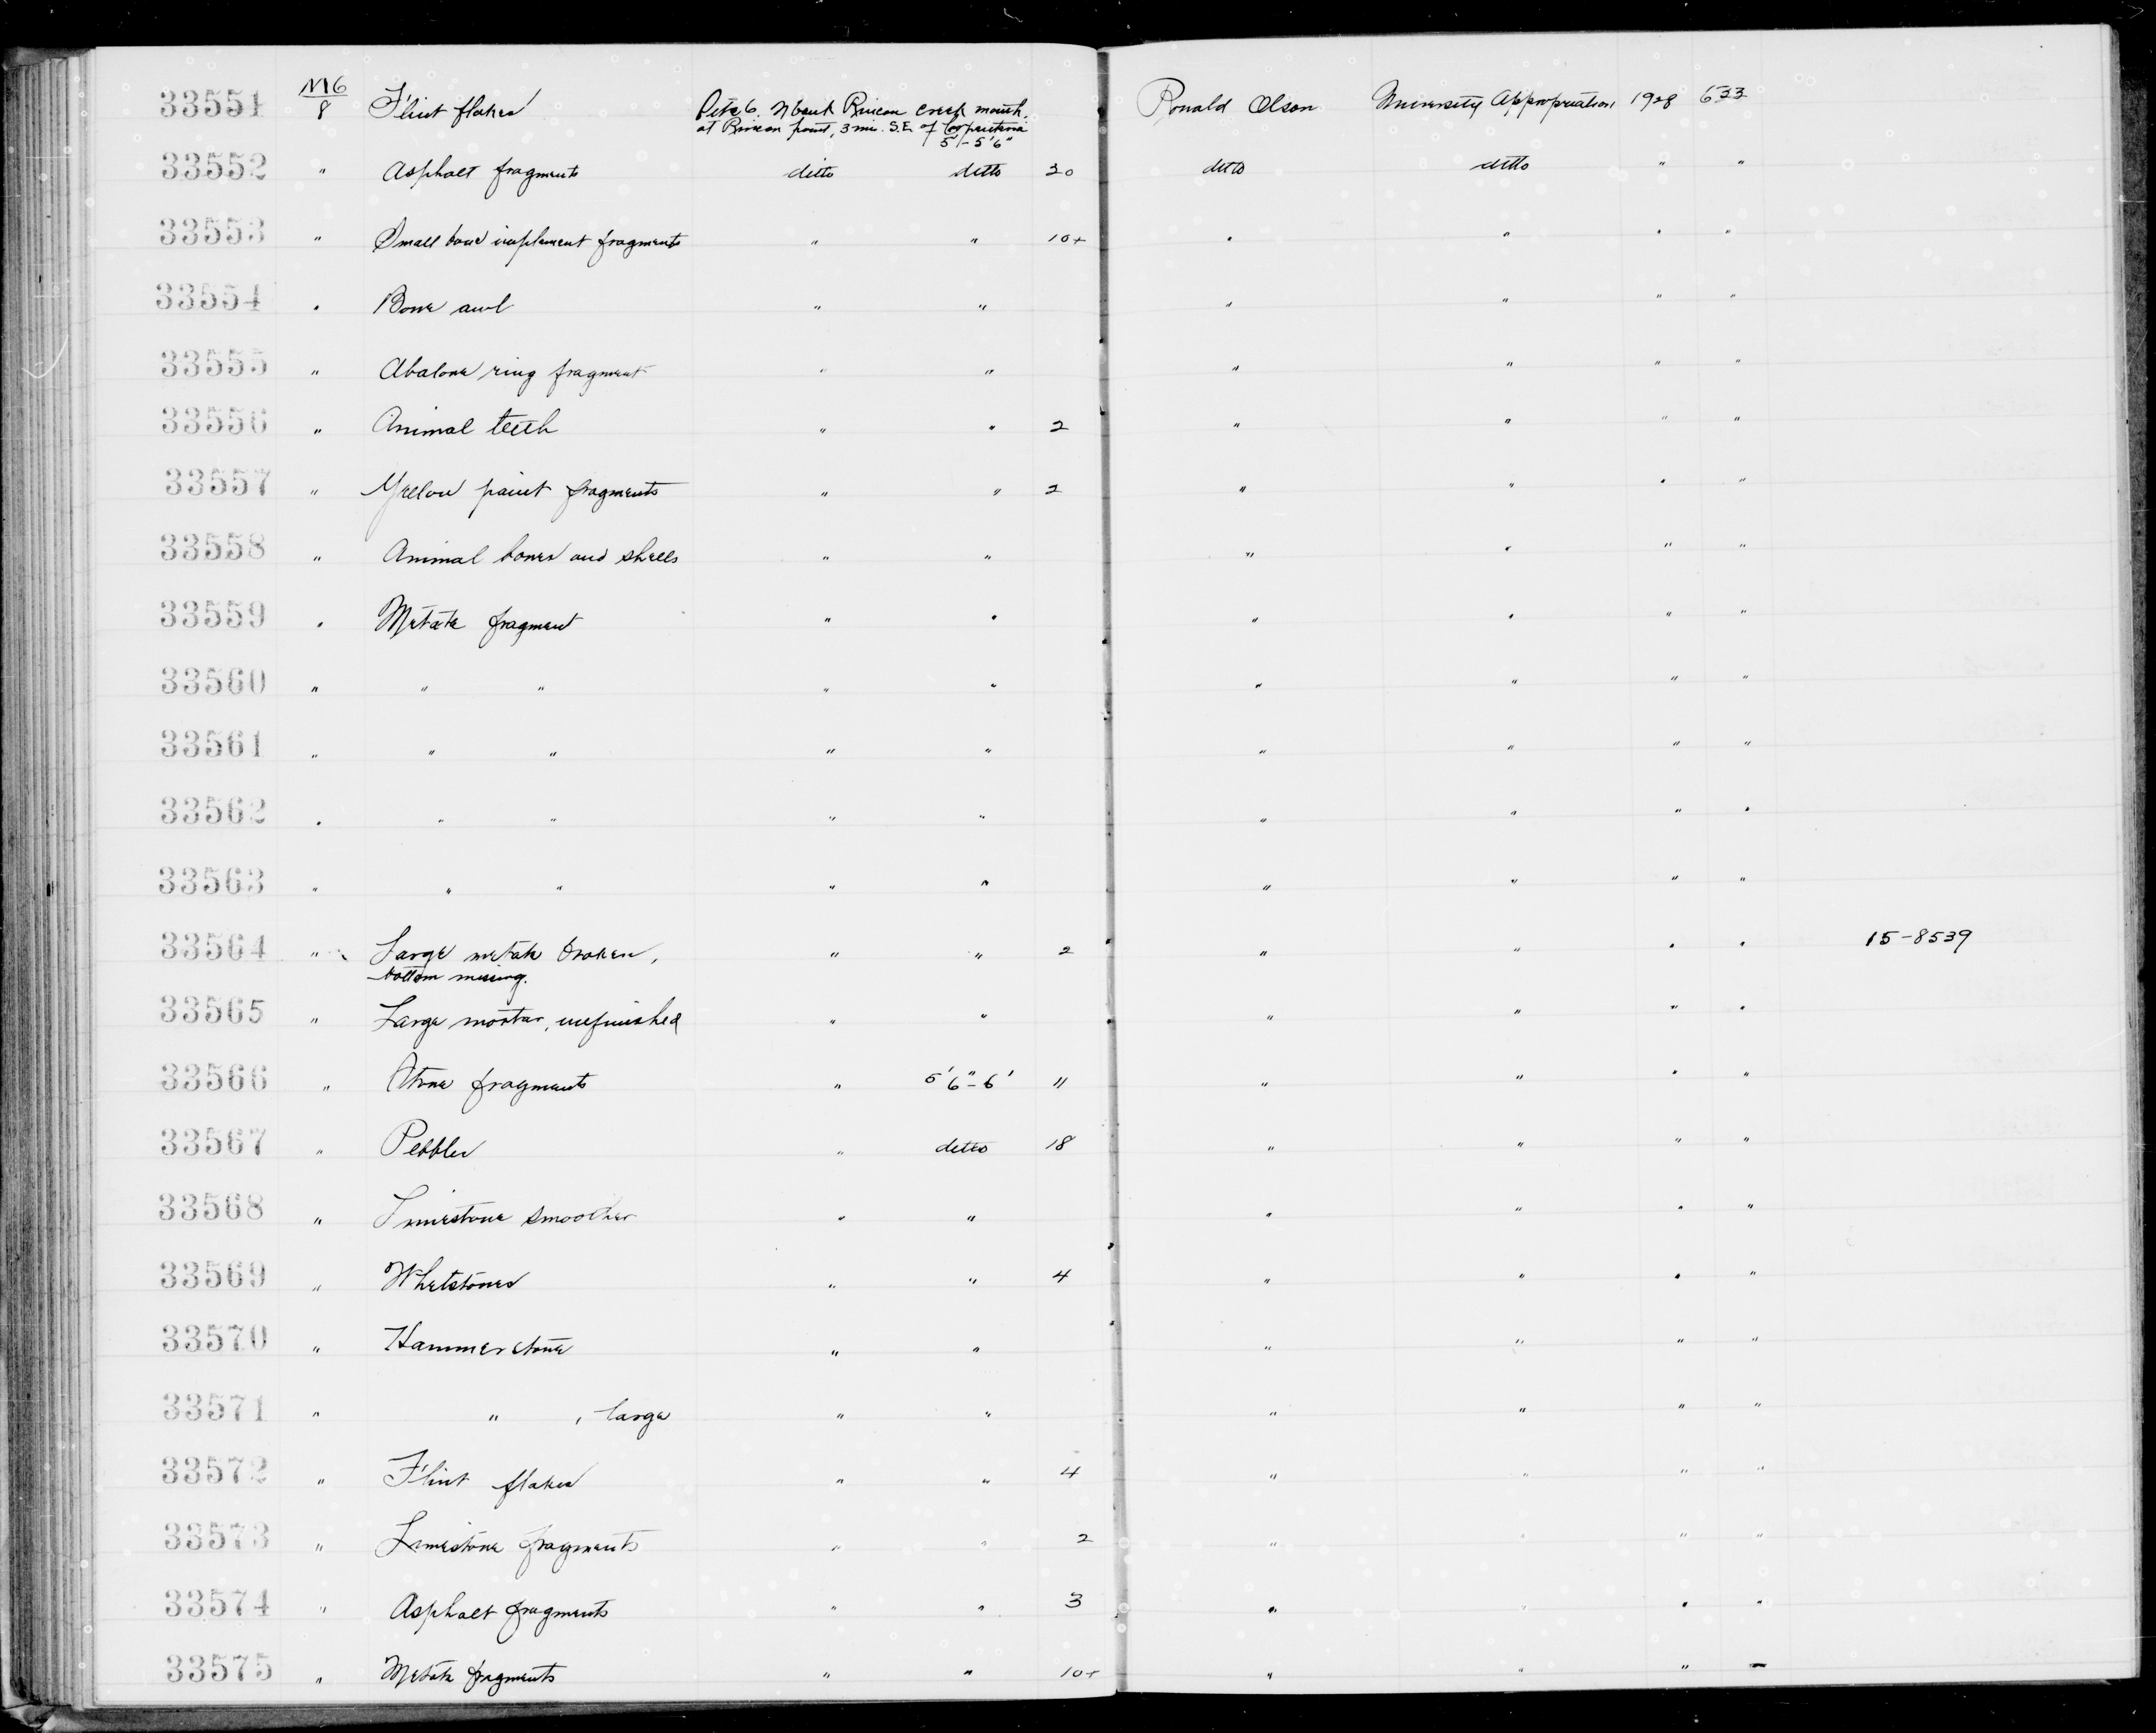 33551 M6/8 Flint flakes Pits 6. N bank Rincon creek mouth, Ronald Olson University Appropriation 1928 633
at Rincon point, 3 mi. S.E. of Carpinteria
5'-5'6"
33552 " Asphalt fragments ditto ditto 20 ditto ditto " "
33553 " Small bone implement fragments " " 10+ " " " "
33554 " Bone awl " " " " " "
33555 " Abalone ring fragment " " " " " "
33556 " Animal teeth " " 2 " " " "
33557 " Yellow paint fragments " " 2 " " " "
33558 " Animal bones and shells " " " " " "
33559 " Metate fragment " " " " " "
33560 " " " " " " " " "
33561 " " " " " " " " "
33562 " " " " " " " " "
33563 " " " " " " " " "
33564 " Large metate broken, " " 2 " " " " 15-8539
bottom missing.
33565 " Large mortar, unfinished " " " " " "
33566 " Stone fragments " 5'6"-6' 11 " " " "
33567 " Pebbles " ditto 18 " " " "
33568 " Limestone smoother " " " " " "
33569 " Whetstones " " 4 " " " "
33570 " Hammerstone " " " " " "
33571 " " , large " " " " " "
33572 " Flint flakes " " 4 " " " "
33573 " Limestone fragments " " 2 " " " "
33574 " Asphalt fragments " " 3 " " " "
33575 " Metate fragments " " 10+ " " " "